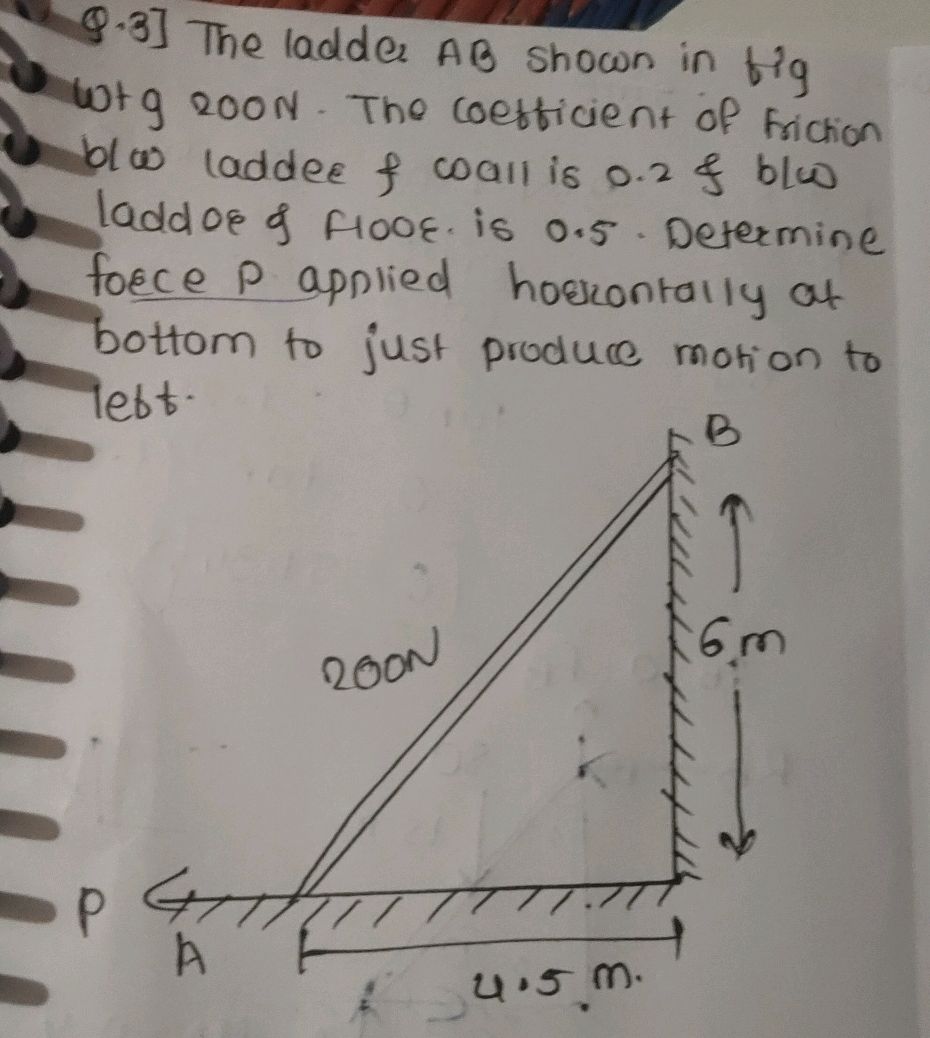 Q.3] The ladder AB shown in fig
wtg 200N. The coefficient of friction
b/w ladder & wall is 0.2 & b/w
ladder & floor. is 0.5. Determine
force P applied horizontally at
bottom to just produce motion to
left.
B
200N
6 m
P
A
4.5 m.